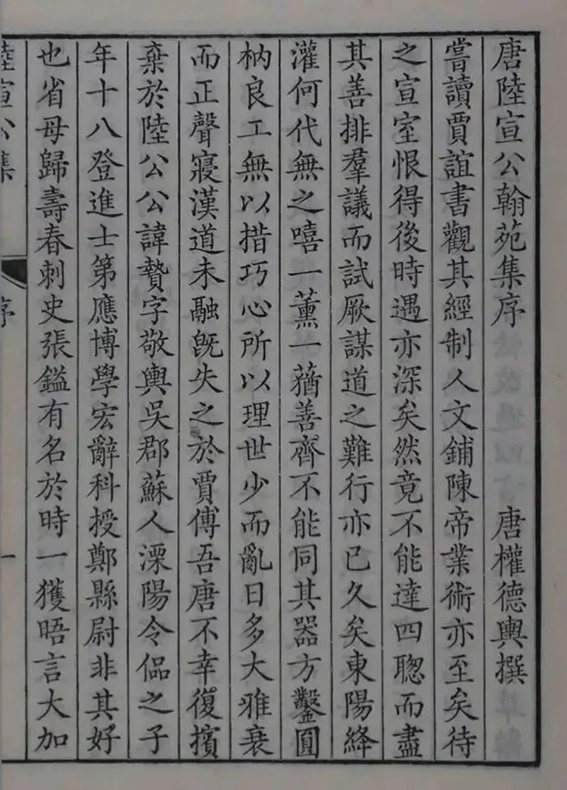 唐陸宣公翰苑集序 唐權德輿撰
嘗讀賈誼書觀其經制人文鋪陳帝業術亦至矣待
之宣室恨得後時遇亦深矣然竟不能達四聦而盡
其善排羣議而試厥謀道之難行亦已久矣東陽絳
灌何代無之嘻一薰一蕕善齊不能同其器方鑿圓
枘良工無以措巧心所以理世少而亂日多大雅衰
而正聲寢漢道未融旣失之於賈傅吾唐不幸復擯
棄於陸公公諱贄字敬輿吳郡蘇人溧陽令偘之子
年十八登進士第應博學宏辭科授鄭縣尉非其好
也省母歸壽春刺史張鎰有名於時一獲晤言大加
陸宣公集 序 一